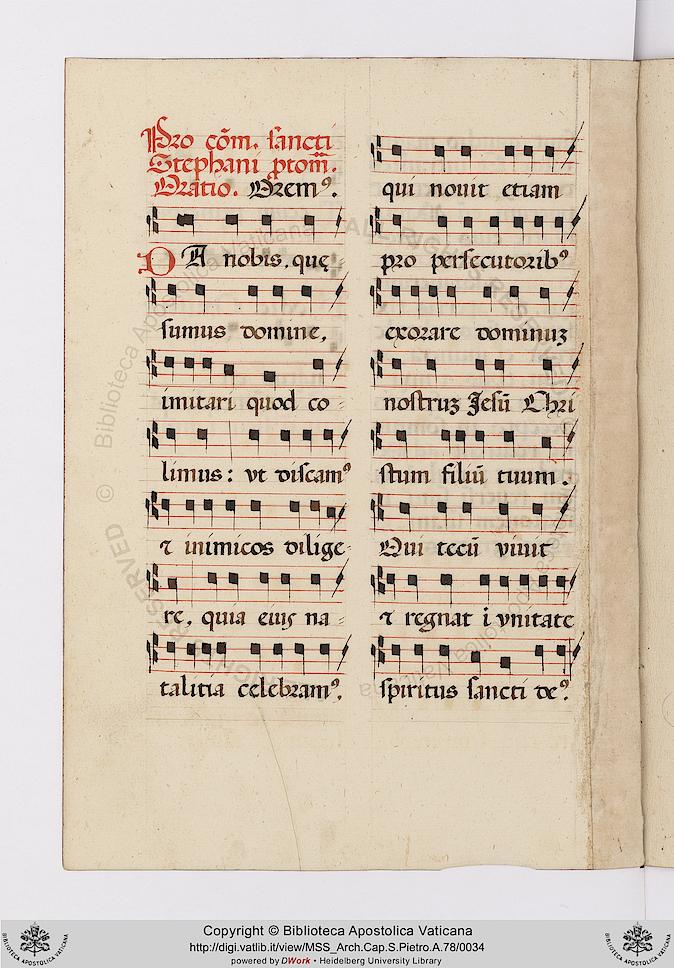 Pro cōm. sancti
Stephani ꝓtom̄.
Oratio. Orem⁹.
DA nobis, quę
sumus domine,
imitari quod co-
limus: vt discam⁹
⁊ inimicos dilige-
re, quia eius na-
talitia celebram⁹.
qui nouit etiam
pro persecutorib⁹
exorare dominuꝫ
nostruꝫ Jesū Chri
stum filiū tuum.
Qui tecū viuit
⁊ regnat ī vnitate
spiritus sancti de⁹.
© Biblioteca Apostolica Vaticana ALL RIGHTS RESERVED
Copyright © Biblioteca Apostolica Vaticana
http://digi.vatlib.it/view/MSS_Arch.Cap.S.Pietro.A.78/0034
powered by DWork • Heidelberg University Library
BIBLIOTECA APOSTOLICA VATICANA
BIBLIOTECA APOSTOLICA VATICANA